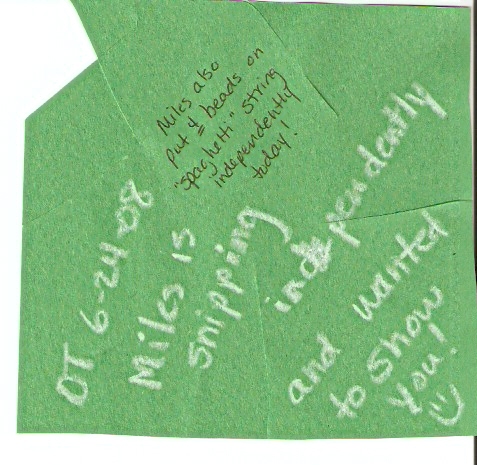 Miles also
put 4 beads on
"spaghetti" string
independently
today!
OT 6-24-08
Miles is
snipping
independently
and wanted
to show
you!